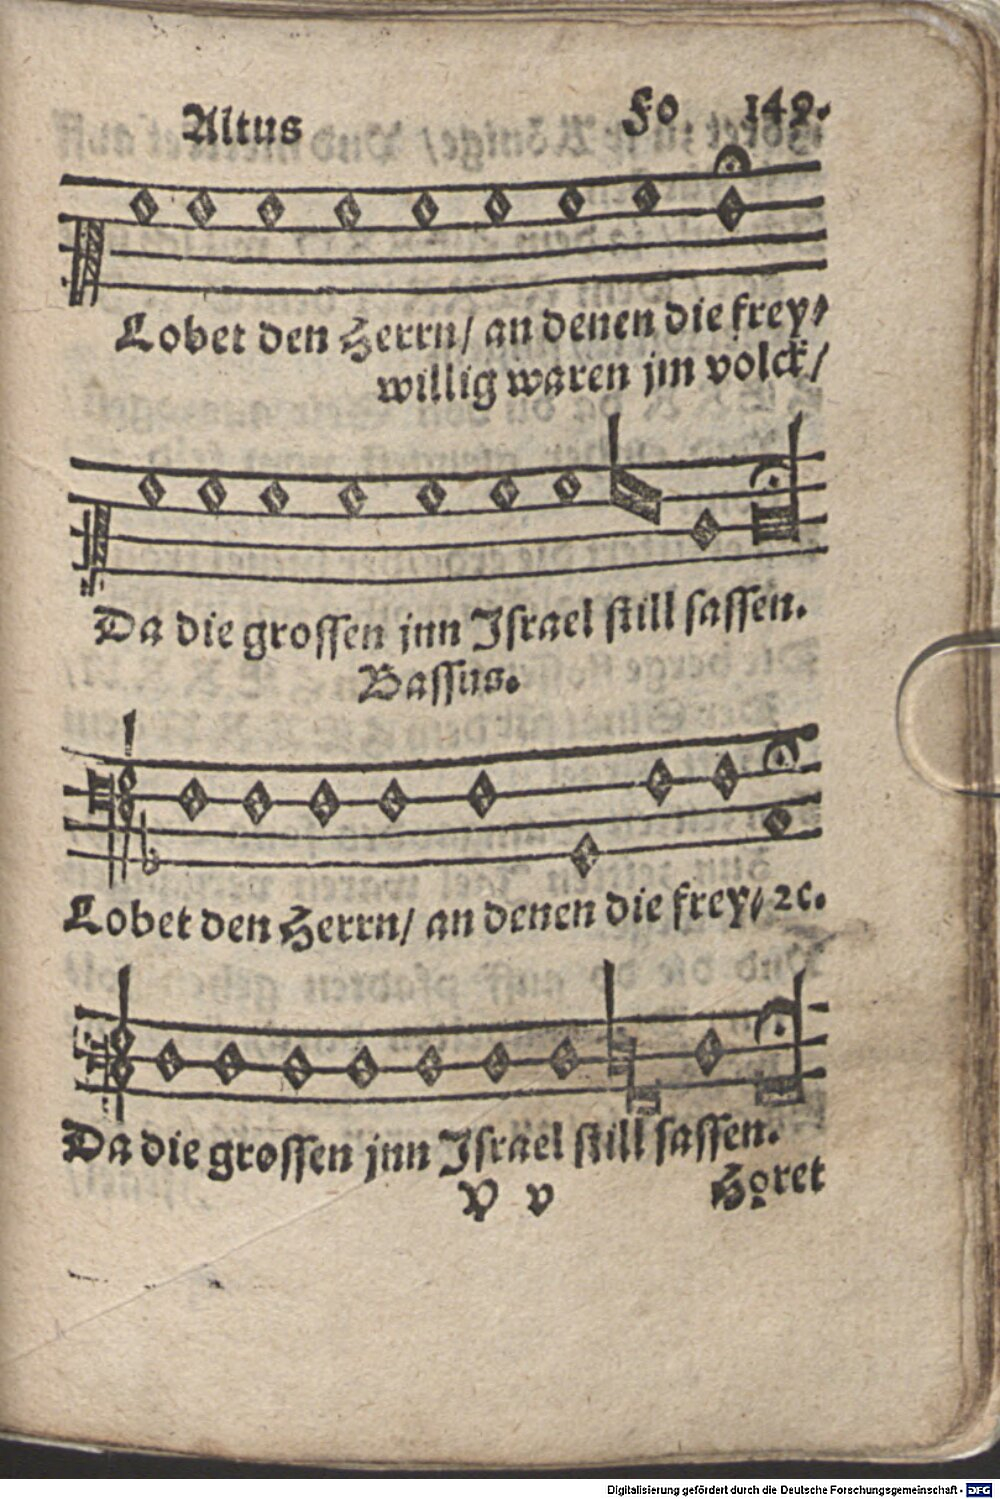 Altus Fo 149.
Lobet den Herrn/ an denen die frey⸗
willig waren jm volck/
Da die grossen jnn Jsrael still sassen.
Bassus.
Lobet den Herrn/ an denen die frey⸗ ⁊c.
Da die grossen jnn Jsrael still sassen.
V v Hoͤret
Digitalisierung gefördert durch die Deutsche Forschungsgemeinschaft - DFG